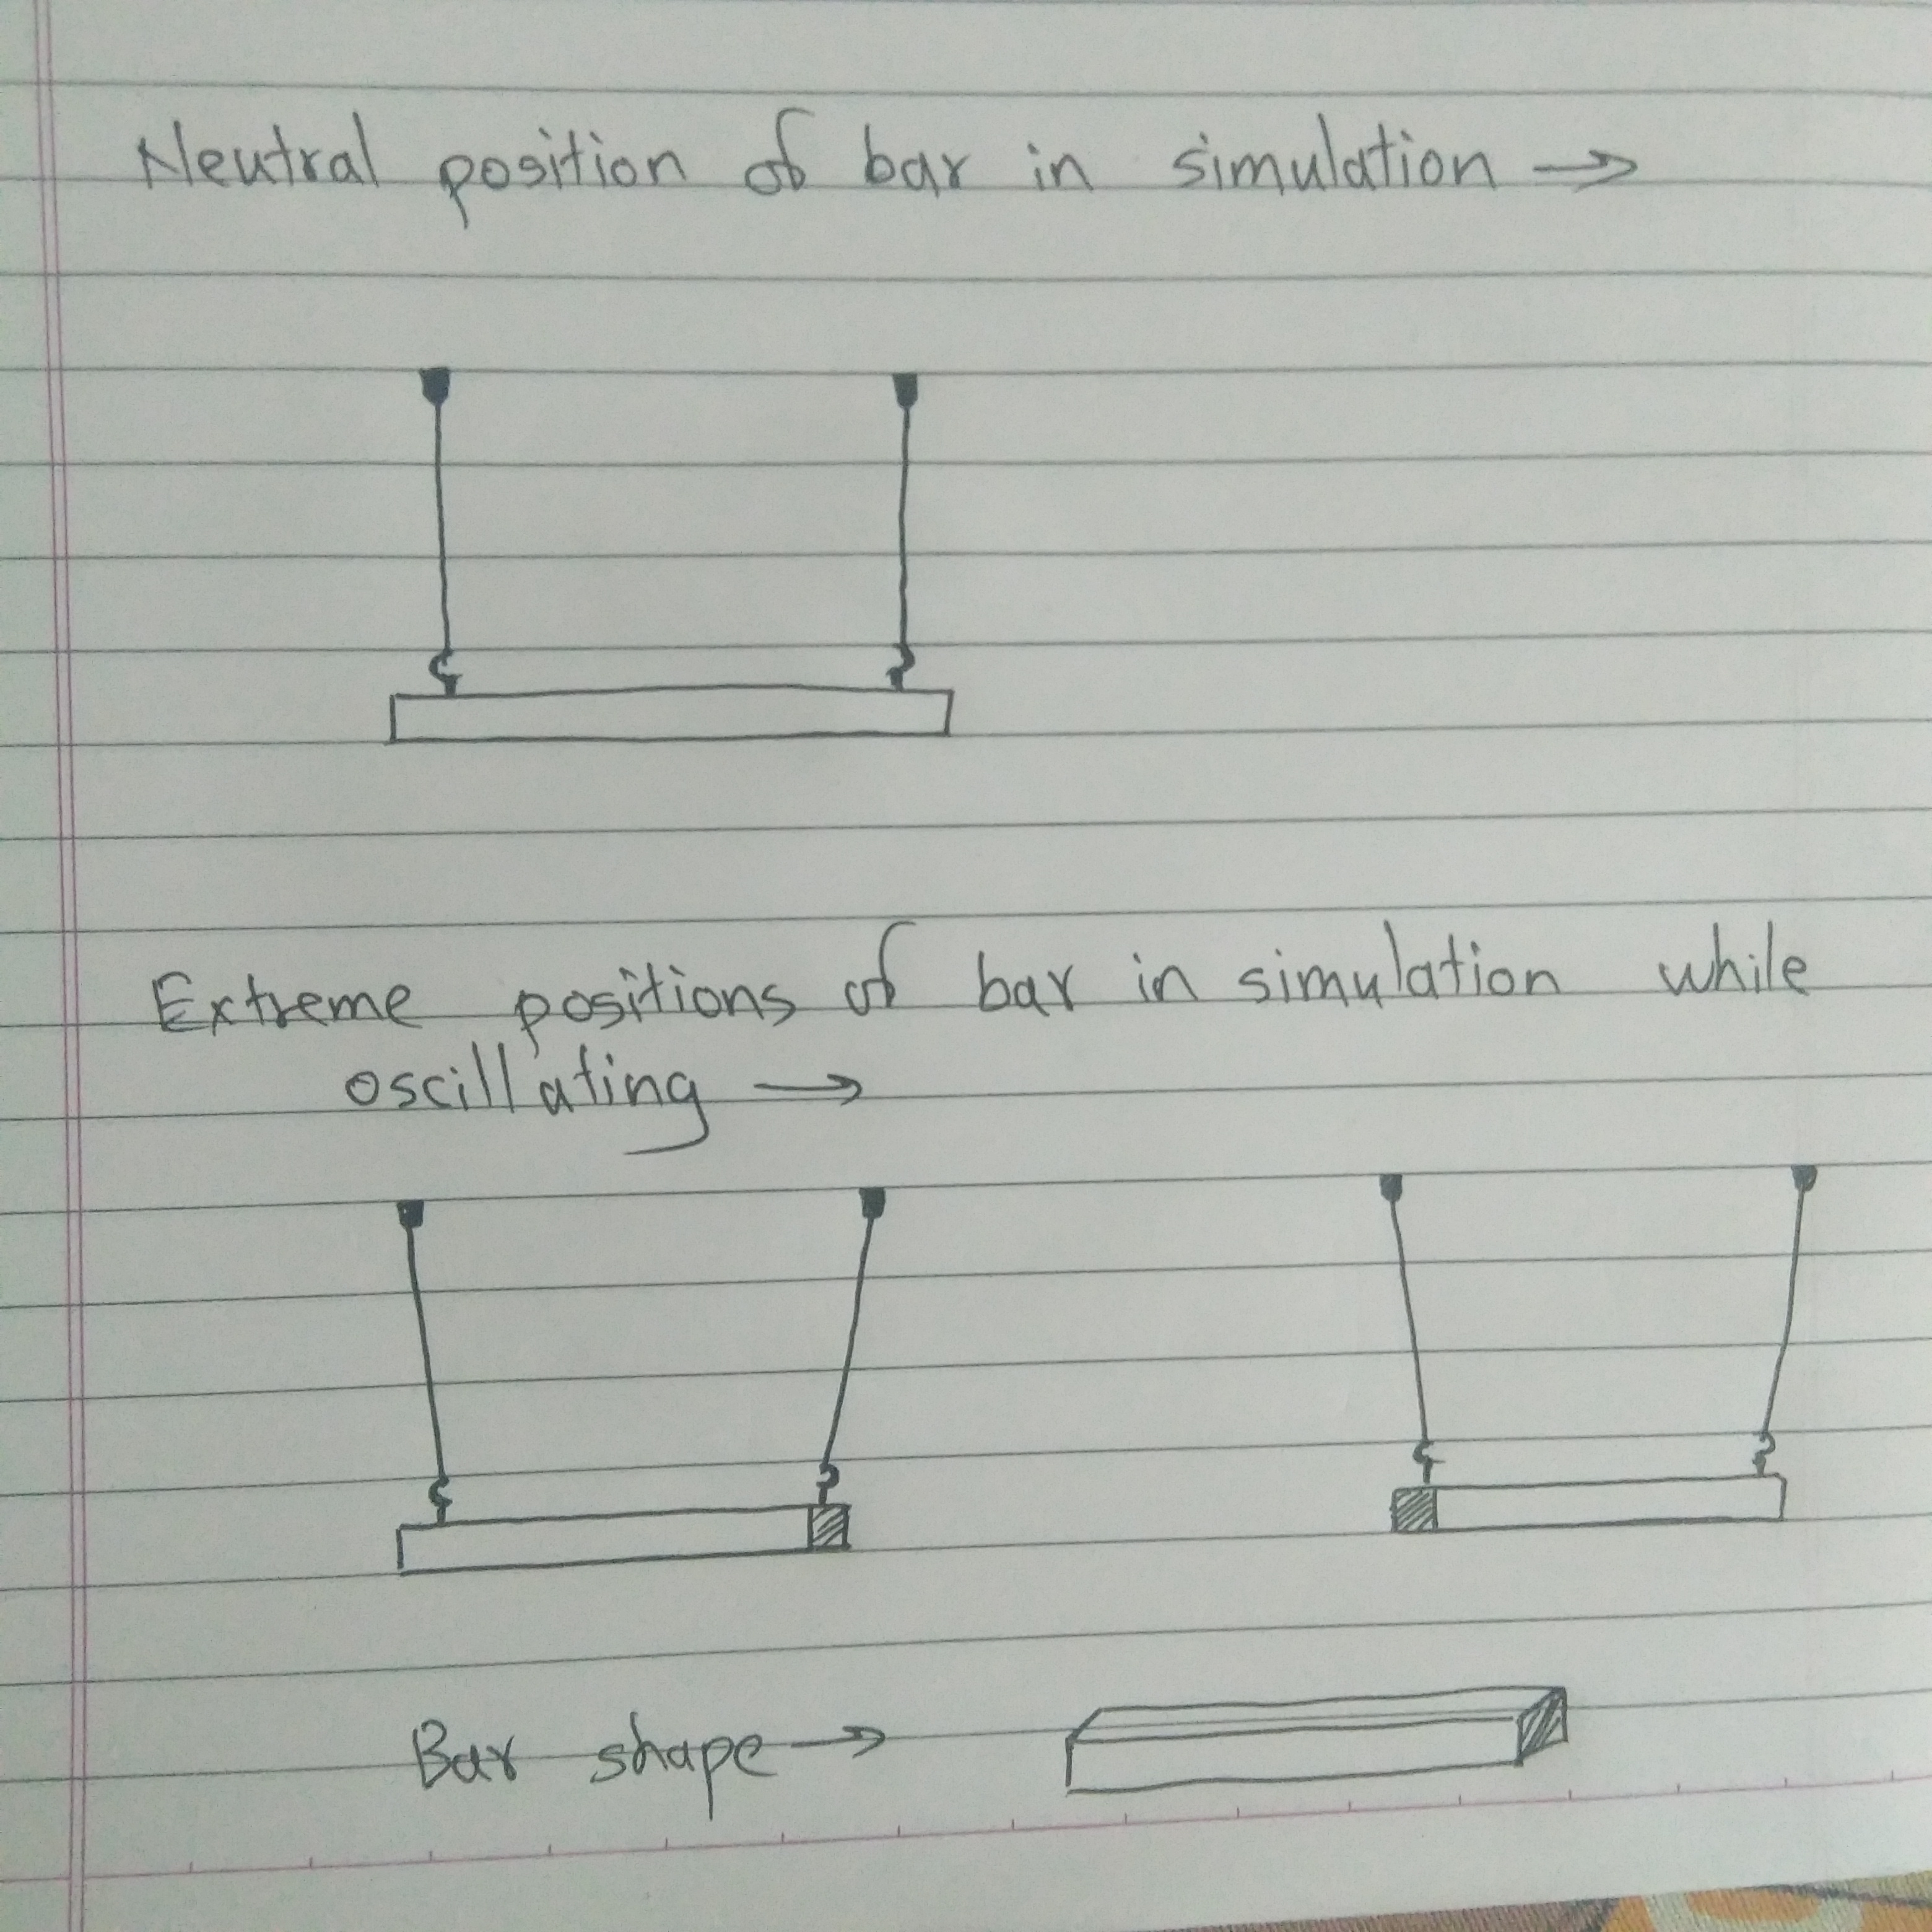 Neutral position of bar in simulation →
Extreme positions of bar in simulation while
oscillating →
Bar shape →